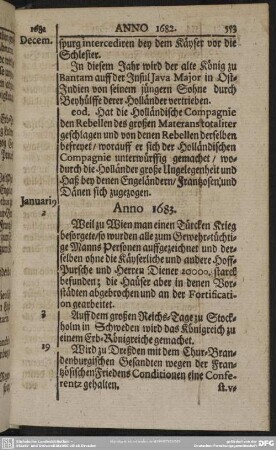 ANNO 1682. 553
1682
Decem.
spurg intercediren bey dem Käyser vor die
Schlesier.
In diesem Jahr wird der alte König zu
Bantam auff der Insul Java Major in Ost-
Indien von seinem jüngern Sohne durch
Beyhülffe derer Holländer vertrieben.
eod. Hat die Holländische Compagnie
den Rebellen des großen Materans totaliter
geschlagen und von denen Rebellen derselben
befreyet/ worauff er sich der Holländischen
Compagnie unterwürffig gemachet/ wo-
durch die Holländer große Ungelegenheit und
Haß bey denen Engeländern/ Frantzosen/ und
Dänen sich zugezogen.
Anno 1683.
Januari9
2
Weil zu Wien man einen Türcken Krieg
besorgete/ so wurden alle zum Gewehr tüchti-
ge Manns Personen auffgezeichnet und der-
selben ohne die Käyserliche und andere Hoff-
Pursche und Herren Diener 20000. starck
befunden; die Häuser aber in denen Vor-
städten abgebrochen und an der Fortificati-
on gearbeitet.
3
Auff dem großen Reichs-Tage zu Stock-
holm in Schweden wird das Königreich zu
einem Erb-Königreiche gemachet.
19
Wird zu Dreßden mit dem Chur-Bran-
denburgischen Gesandten wegen der Fran-
tzösischen Friedens Conditionen eine Confe-
rentz gehalten.
st. v.
DFG